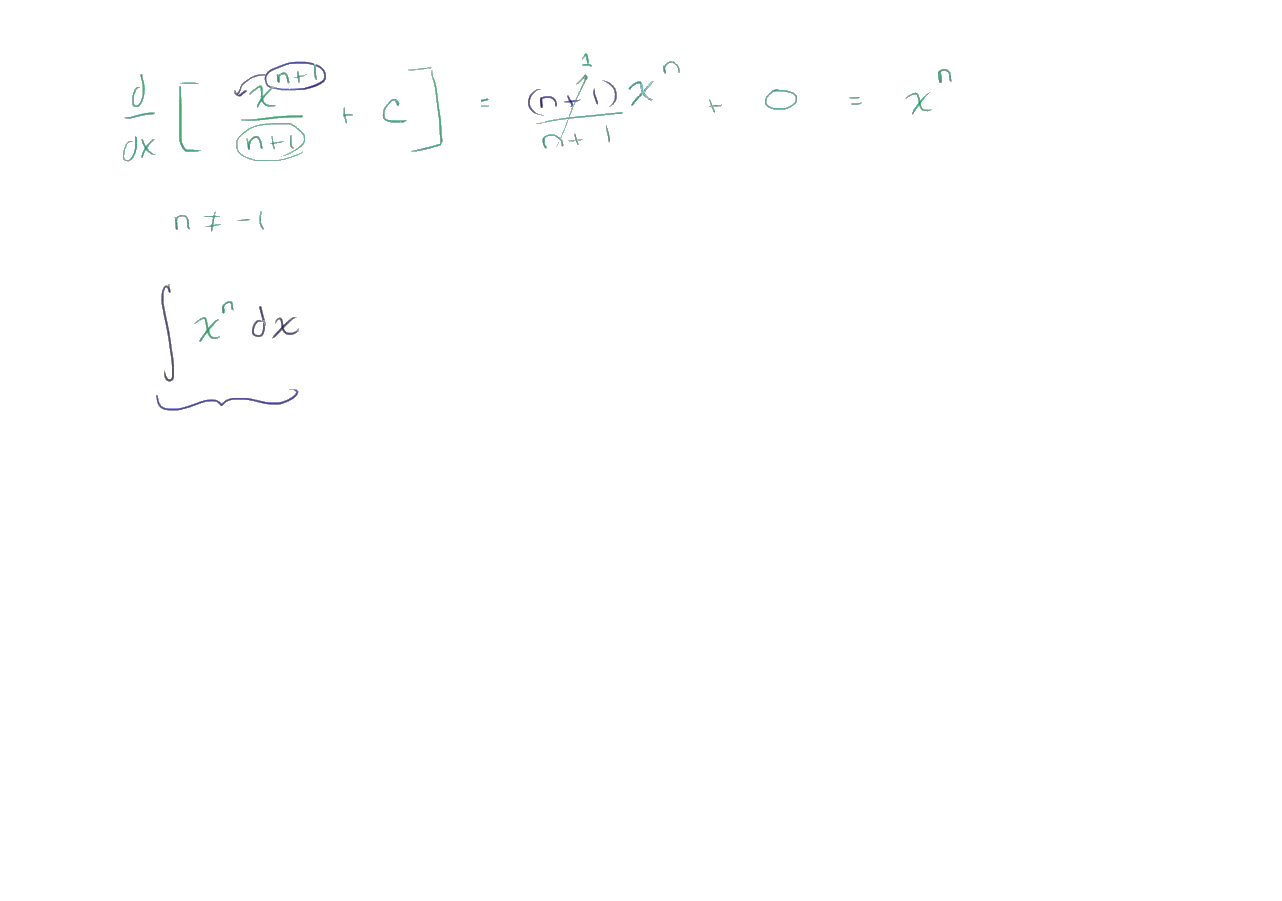 d/dx [ x^(n+1)/(n+1) + C ] = (n+1)x^n/(n+1) 1 + 0 = x^n
n ≠ -1
∫ x^n dx